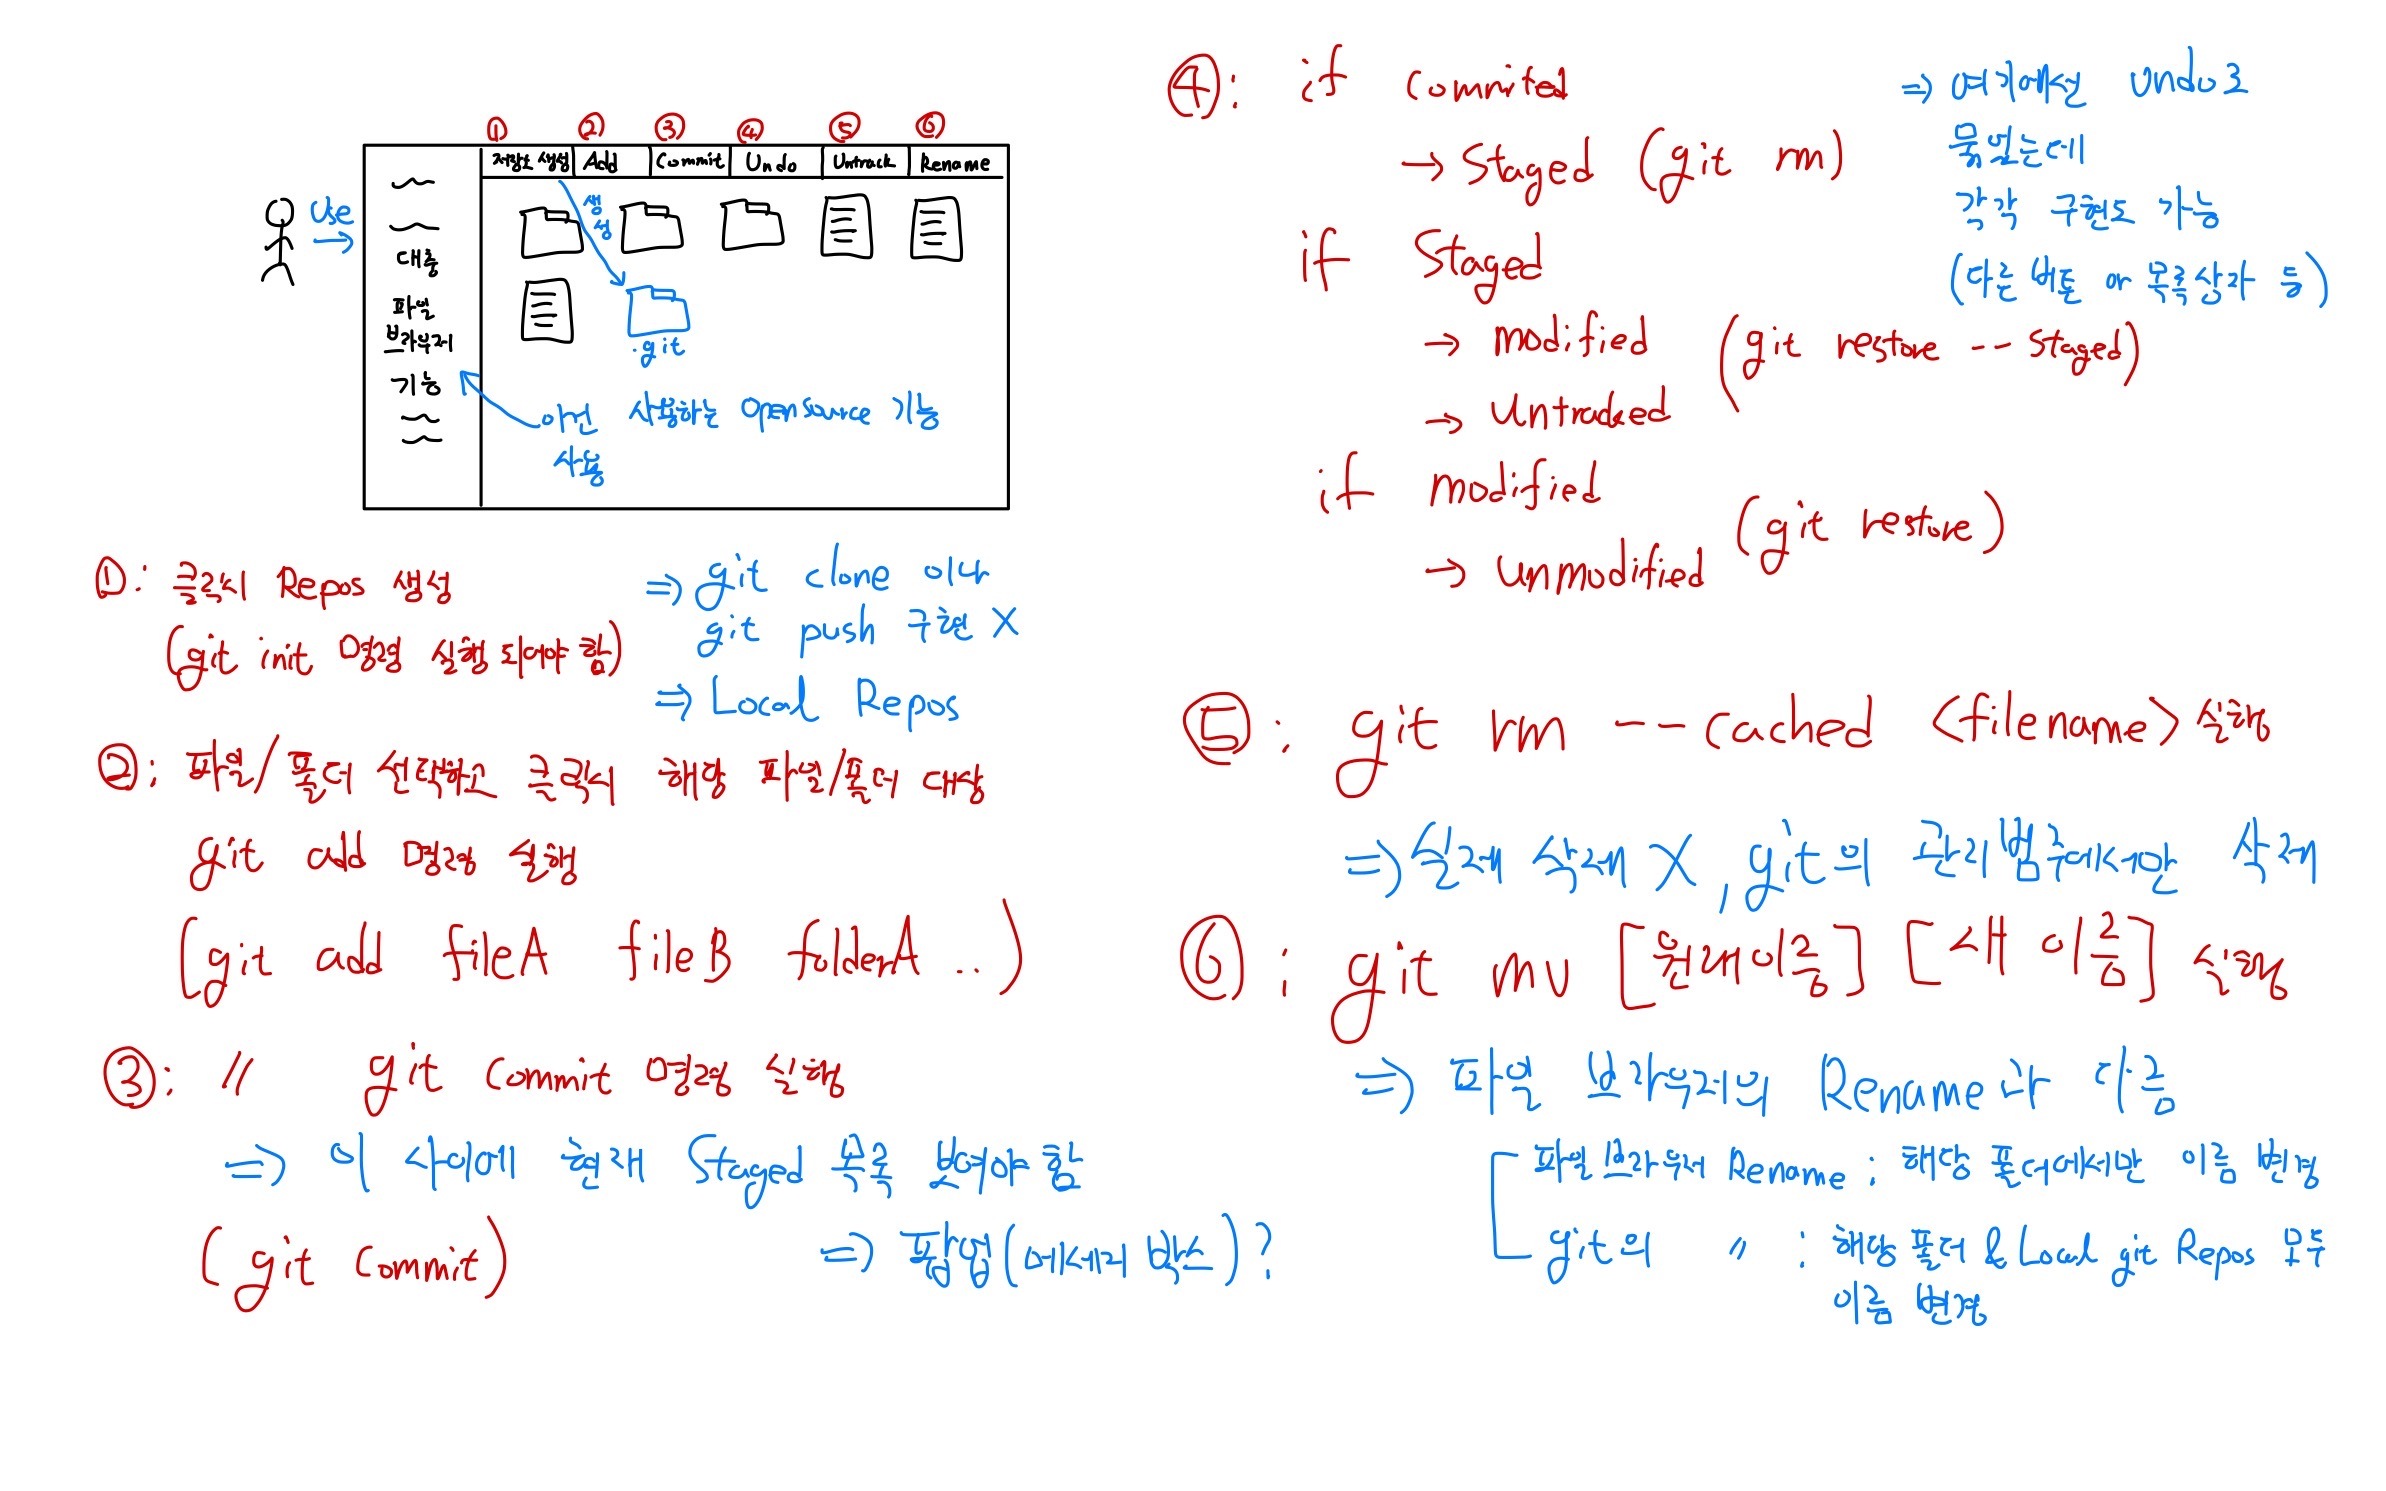 ① ② ③ ④ ⑤ ⑥
저장소 생성 Add Commit Undo Untrack Rename
Use
생성
대충
파일
브라우저
기능
.git
사용하는 Opensource 기능
사용
①: 클릭시 Repos 생성
(git init 명령 실행되어야 함)
⇒ git clone 이나
git push 구현 X
⇒ Local Repos
②: 파일/폴더 선택하고 클릭시 해당 파일/폴더 대상
git add 명령 실행
(git add fileA fileB folderA ..)
③: 〃 git commit 명령 실행
⇒ 이 사이에 현재 Staged 목록 보여야 함
(git commit)
⇒ 팝업(메세지 박스)?
④: if commited
→ Staged (git rm)
if Staged
→ modified
→ untracked
(git restore -- staged)
if modified
→ unmodified
(git restore)
⇒ 여기에선 undo로
묶었는데
각각 구현도 가능
(다른 버튼 or 목록상자 등)
⑤: git rm --cached <filename> 실행
⇒ 실제 삭제 X, git의 관리범주에서만 삭제
⑥: git mv [원래이름] [새 이름] 실행
⇒ 파일 브라우저의 Rename과 다름
파일 브라우저 Rename: 해당 폴더에서만 이름 변경
git의 〃 : 해당 폴더 & Local git Repos 모두
이름 변경